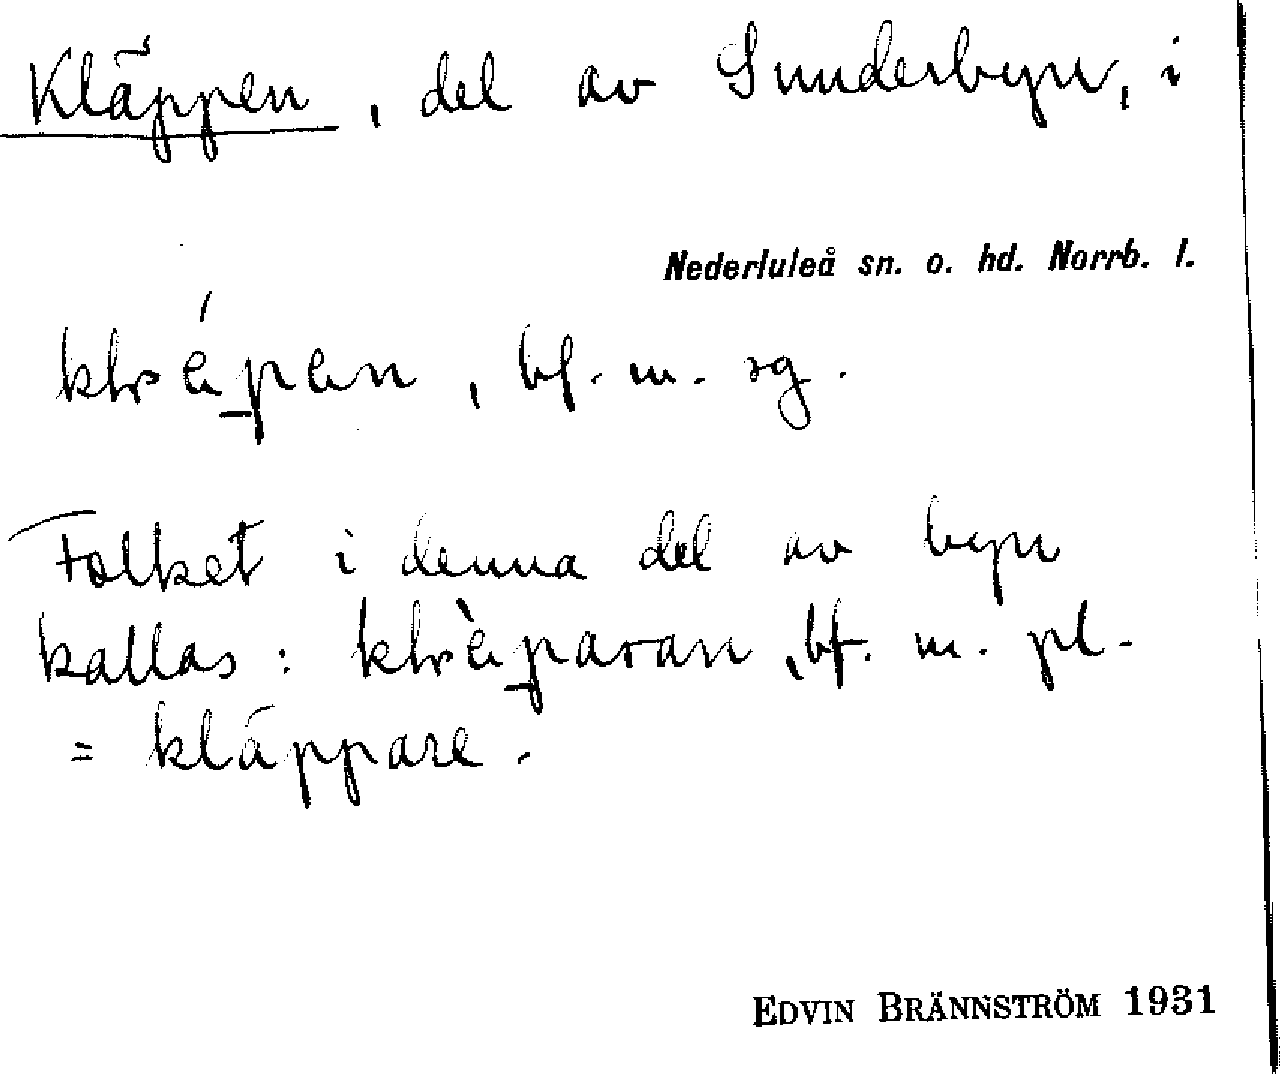 Kläppen, del av Sunderbyn, i
Nederluleå sn. o. hd. Norrb. l.
bf. m. sg.
Folket i denna del av byn
kallas: bf. m. pl.
= kläppare.
EDVIN BRÄNNSTRÖM 1931